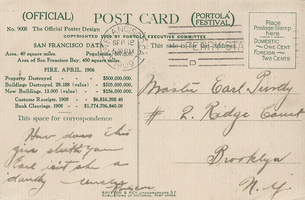 (OFFICIAL) POST CARD (PORTOLA FESTIVAL)
No. 9008 The Official Poster Design
COPYRIGHTED 1909 BY PORTOLA EXECUTIVE COMMITTEE
SAN FRANCISCO DATA
This side is for the
Area, 40 square miles.
Area of San Francisco Bay, 450 square miles.
FIRE, APRIL, 1906
Property Destroyed - $500,000,000.
Buildings Destroyed, 28,188 (value) $105,000,000.
New Buildings, 19,000 (value) $150,000,000.
Customs Receipts, 1908
Bank Clearings, 1908
This space for correspondence
SEP 12
1909
Place
Postage Stamp
here
DOMESTIC
ONE CENT
FOREIGN
TWO CENTS
Master Earl Purdy
# 2 Ridge Court
Brooklyn
N.Y.
How does this
you
Earl isn't she a
dandy
BRITTON & REY, LITHOGRAPHERS, S.F.